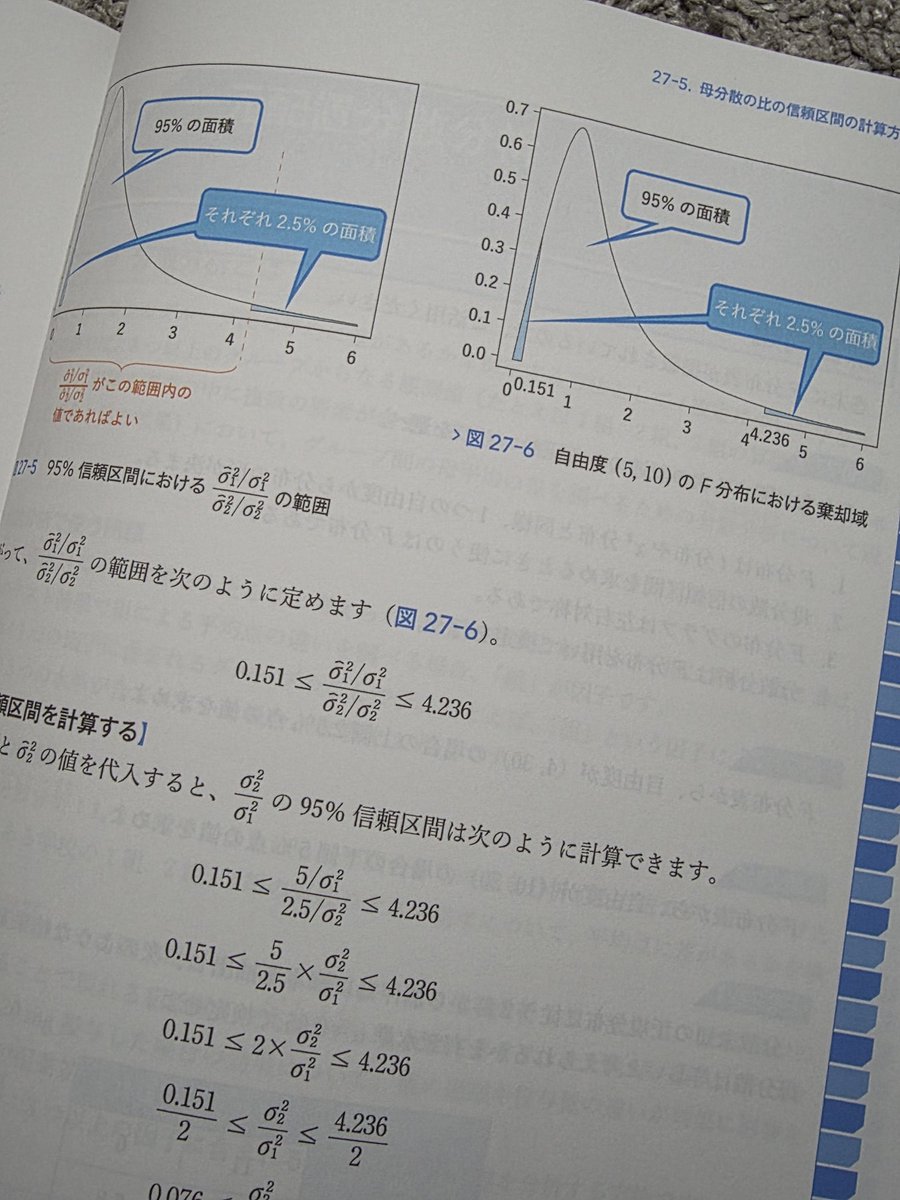 27-5. 母分散の比の信頼区間の計算方
95% の面積
それぞれ 2.5% の面積
0 1 2 3 4 5 6
σ̂₁²/σ₁² / σ̂₂²/σ₂² がこの範囲内の
値であればよい
27-5 95% 信頼区間における σ̂₁²/σ₁² / σ̂₂²/σ₂² の範囲
0.7
0.6
0.5
0.4
0.3
0.2
0.1
0.0
95% の面積
それぞれ 2.5% の面積
0 0.151 1 2 3 4 4.236 5 6
> 図 27-6 自由度 (5, 10) の F 分布における棄却域
って、 σ̂₁²/σ₁² / σ̂₂²/σ₂² の範囲を次のように定めます (図 27-6)。
0.151 ≤ σ̂₁²/σ₁² / σ̂₂²/σ₂² ≤ 4.236
頼区間を計算する】
と σ̂₂² の値を代入すると、 σ₂²/σ₁² の 95% 信頼区間は次のように計算できます。
0.151 ≤ 5/σ₁² / 2.5/σ₂² ≤ 4.236
0.151 ≤ 5/2.5 × σ₂²/σ₁² ≤ 4.236
0.151 ≤ 2 × σ₂²/σ₁² ≤ 4.236
0.151/2 ≤ σ₂²/σ₁² ≤ 4.236/2
0.076 ≤ σ₂²